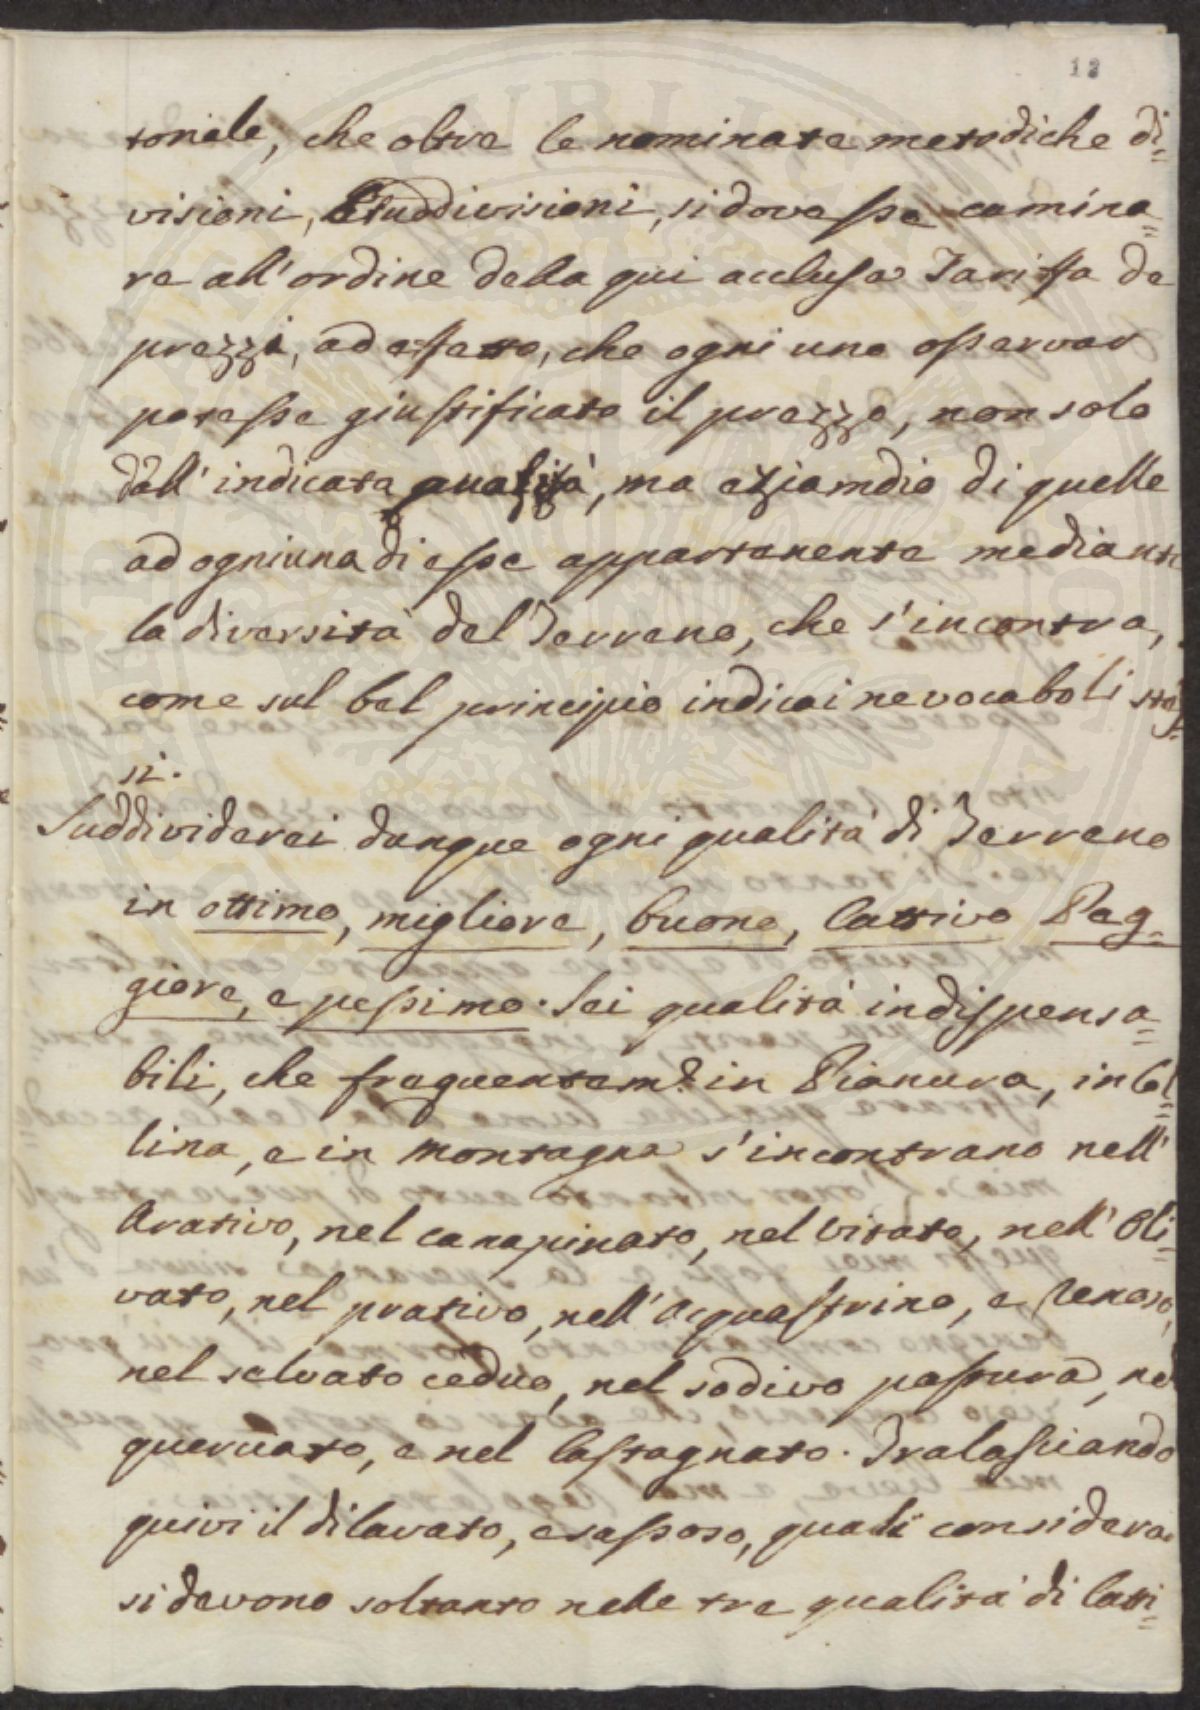 12
toriale, che oltre le nominate metodiche di=
visioni, e suddivisioni, si dovesse camina=
re all' ordine della qui acclusa Tariffa de
prezzi, ad effetto, che ogni uno osservar
potesse giustificato il prezzo, non solo
dall' indicata qualità, ma eziamdio di quelle
ad ogniuna di esse appartenente mediante
la diversità del Terreno, che s'incontra,
come sul bel principio indicai ne vocaboli stes=
si.
Suddividerei dunque ogni qualità di Terreno
in ottimo, migliore, buono, Cattivo Peg=
giore, e pessimo. Sei qualità indispensa=
bili, che frequentem.e in Pianura, in Col=
lina, e in Montagna s'incontrano nell'
Arativo, nel canapinato, nel Vitato, nell' Oli=
vato, nel prativo, nell' Acquastrino, e Renoso,
nel selvato ceduo, nel sodivo pastura, nel
quercuato, e nel Castagnato. Tralasciando
quivi il dilavato, e sassoso, quali considerar
si devono soltanto nelle tre qualità di Catti=